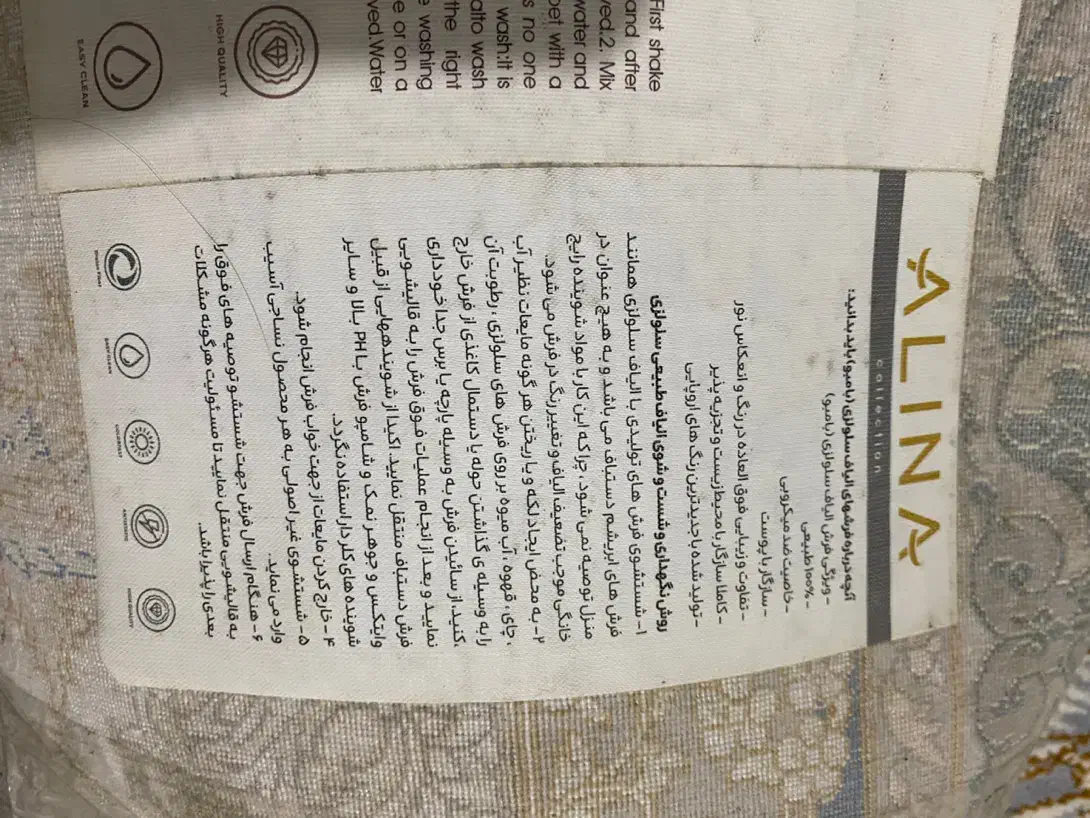 ALINA
collection
آنچه درباره فرشهای الیاف سلولزی (بامبو) باید بدانید:
- ویژگی فرش الیاف سلولزی (بامبو)
- ۱۰۰% طبیعی
- خاصیت ضد میکروبی
- سازگار با پوست
- تفاوت و زیبایی فوق العاده در رنگ و انعکاس نور
- کاملا سازگار با محیط زیست و تجزیه پذیر
- تولید شده با جدیدترین رنگ های اروپایی
روش نگهداری و شست و شوی الیاف طبیعی سلولزی
۱- شستشوی فرش های تولیدی با الیاف سلولزی همانند
فرش های ابریشم دستباف می باشد و به هیچ عنوان در
منزل توصیه نمی شود، چرا که این کار با مواد شوینده رایج
خانگی موجب تضعیف الیاف و تغییر رنگ در فرش می شود.
۲- به محض ایجاد لکه و یا ریختن هر گونه مایعات نظیر آب
، چای، قهوه ، آب میوه بر روی فرش های سلولزی ، رطوبت آن
را به وسیله ی گذاشتن حوله یا دستمال کاغذی از فرش خارج
کنید، از سائیدن فرش به وسیله پارچه یا برس جدا خودداری
نمایید و بعد از انجام عملیات فوق فرش را به قالیشویی
فرش دستباف منتقل نمایید. اکیدا از شویندههایی از قبیل
وایتکس و جوهر نمک و شامپو فرش با PH بالا و سایر
شوینده های کلر دار استفاده نگردد.
۴- خارج کردن مایعات از جهت خواب فرش انجام شود.
۵- شستشوی غیر اصولی به هر محصول نساجی آسیب
وارد می نماید.
۶- هنگام ارسال فرش جهت شستشو توصیه های فوق را
به قالیشویی منتقل نمایید تا مسئولیت هرگونه مشکلات
بعدی را پذیرا باشد.
EASY CLEAN
HIGH QUALITY
First shake
and after
ved.2. Mix
water and
pet with a
s no one
wash:It is
atto wash
the right
e washing
e or on a
ved.Water
EASY CLEAN
HIGH QUALITY